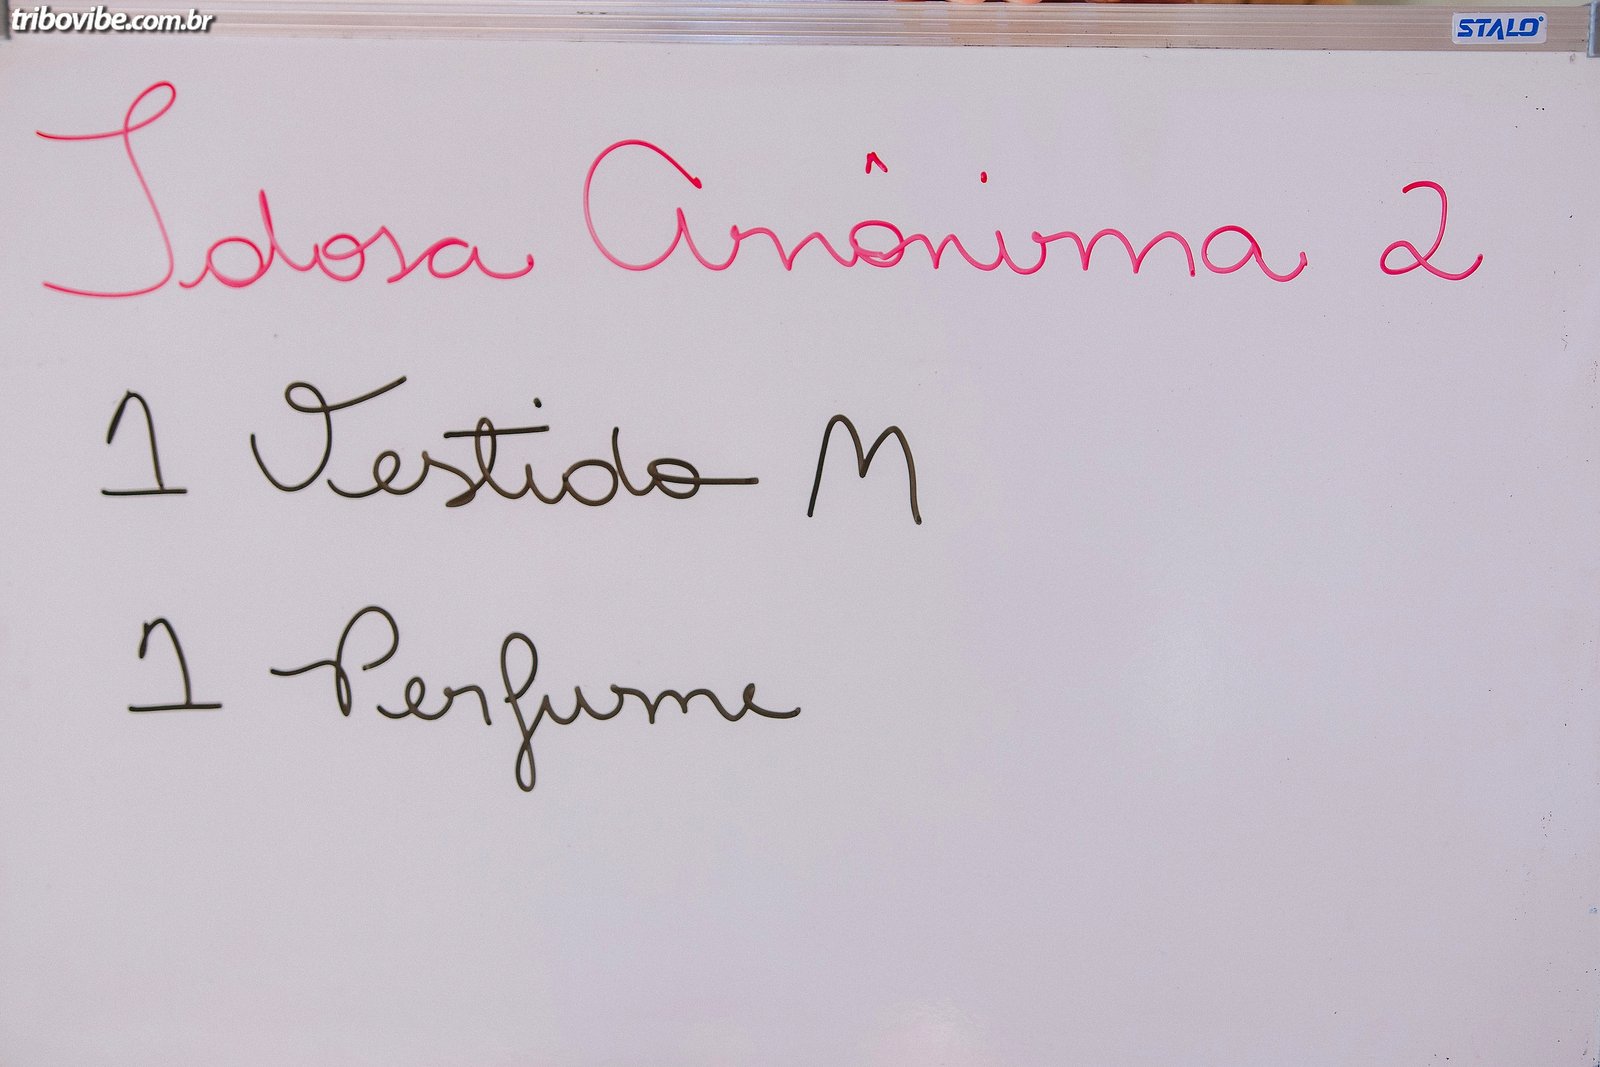 tribovibe.com.br
STALO
Idosa Anônima 2
1 Vestido M
1 Perfume